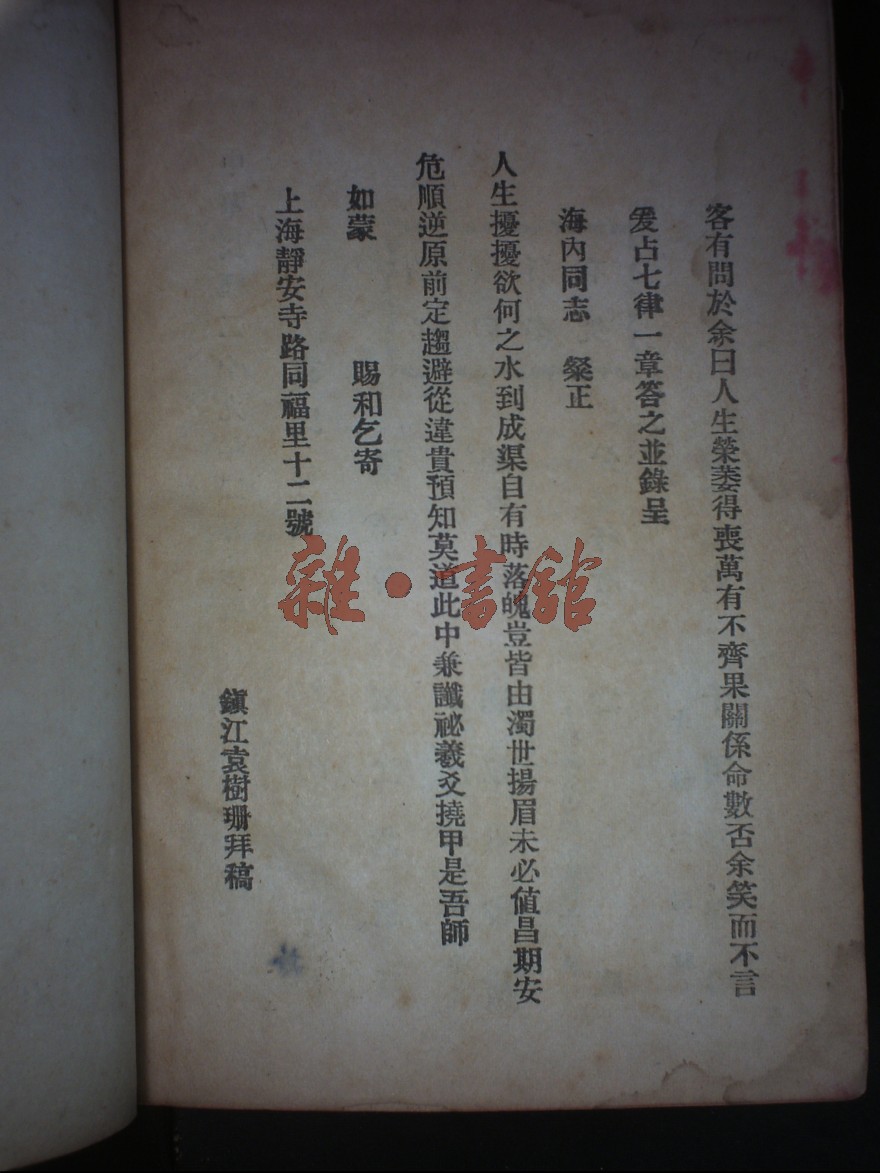 客有問於余曰人生榮萎得喪萬有不齊果關係命數否余笑而不言
爰占七律一章答之並錄呈
海內同志　粲正
人生擾擾欲何之水到成渠自有時落魄豈皆由濁世揚眉未必值昌期安
危順逆原前定趨避從違貴預知莫道此中兼讖祕羲爻撓甲是吾師
如蒙　賜和乞寄
上海靜安寺路同福里十二號
鎮江袁樹珊拜稿
雜·書館